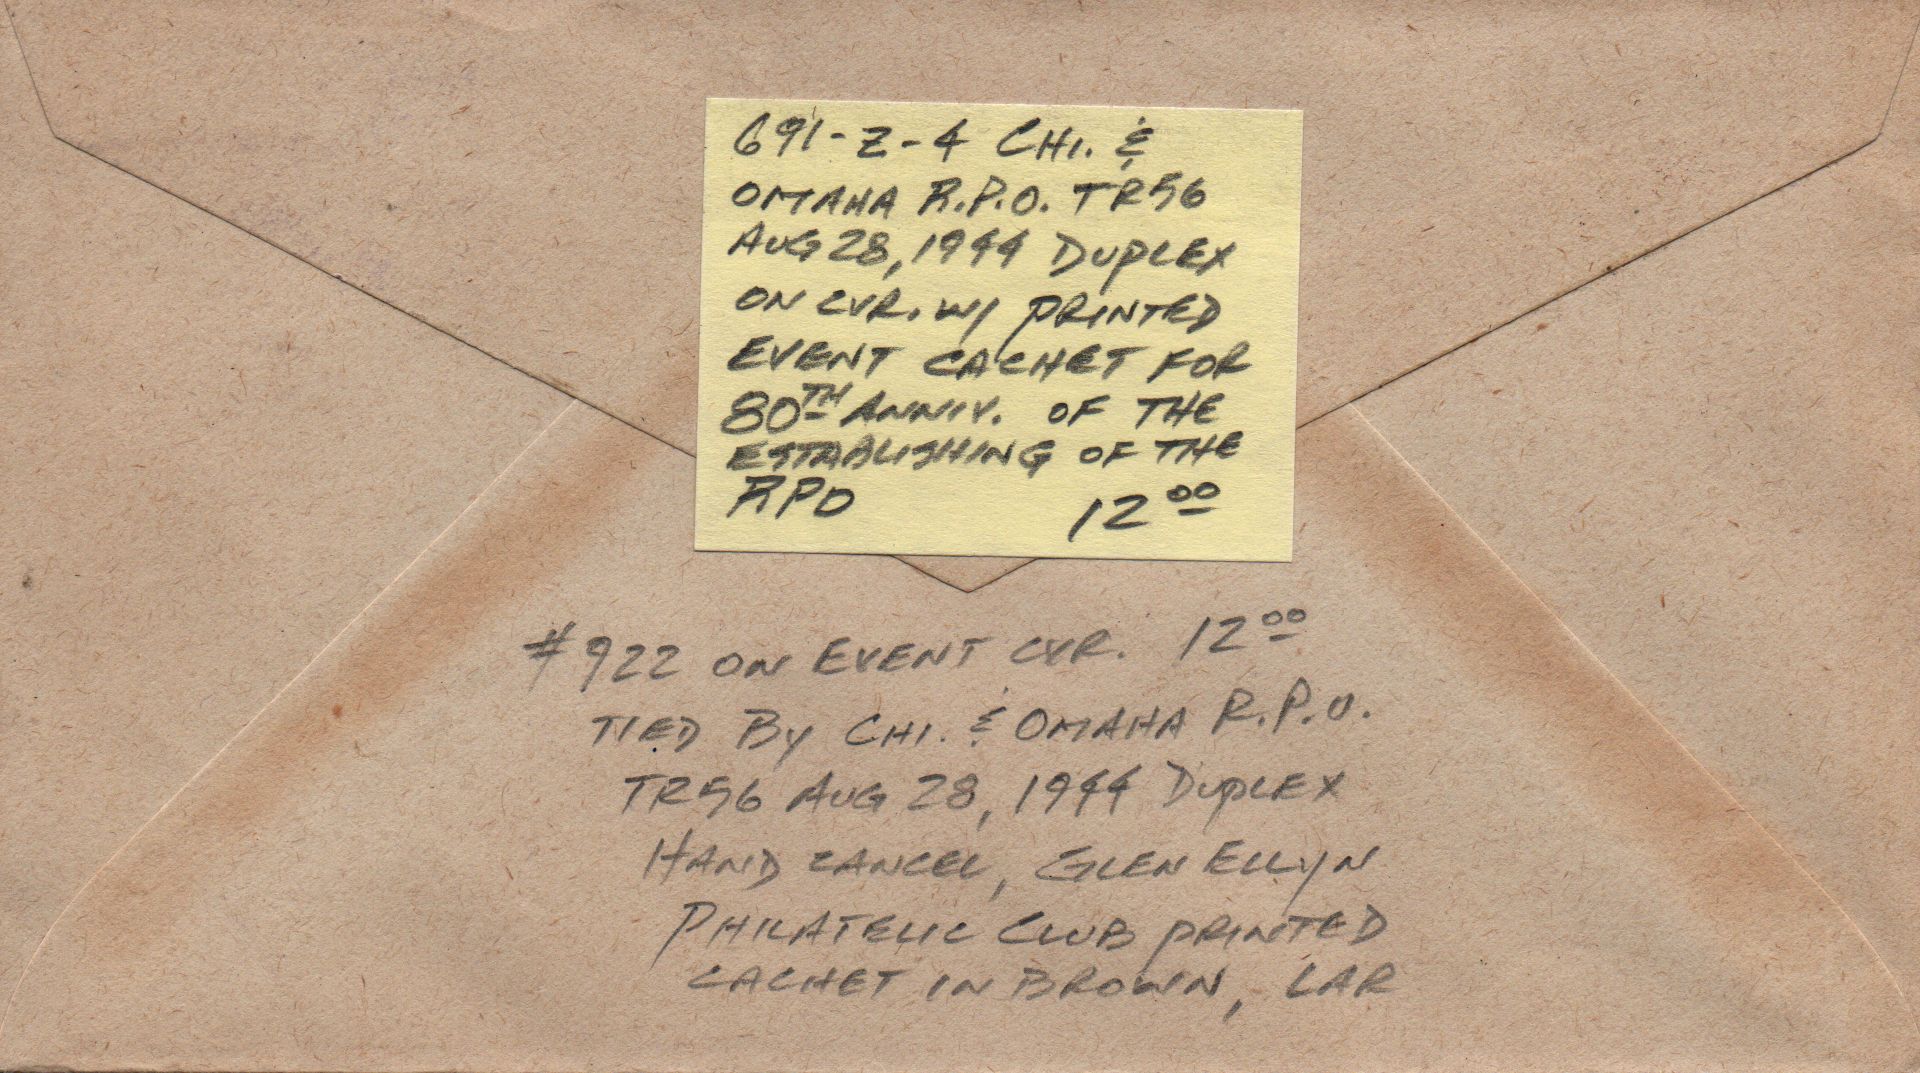 691-Z-4 CHI. &
OMAHA R.P.O. TR56
AUG 28, 1944 DUPLEX
ON CVR. W/ PRINTED
EVENT CACHET FOR
80TH ANNIV. OF THE
ESTABLISHING OF THE
RPO 1200
#922 ON EVENT CVR. 1200
TIED BY CHI. & OMAHA R.P.O.
TR56 AUG 28, 1944 DUPLEX
HAND CANCEL, GLEN ELLYN
PHILATELIC CLUB PRINTED
CACHET IN BROWN, LAR